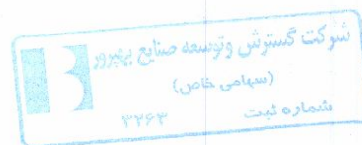 شرکت گسترش وتوسعه صنایع بهپرور
(سهامی خاص)
شماره ثبت ۳۲۶۳